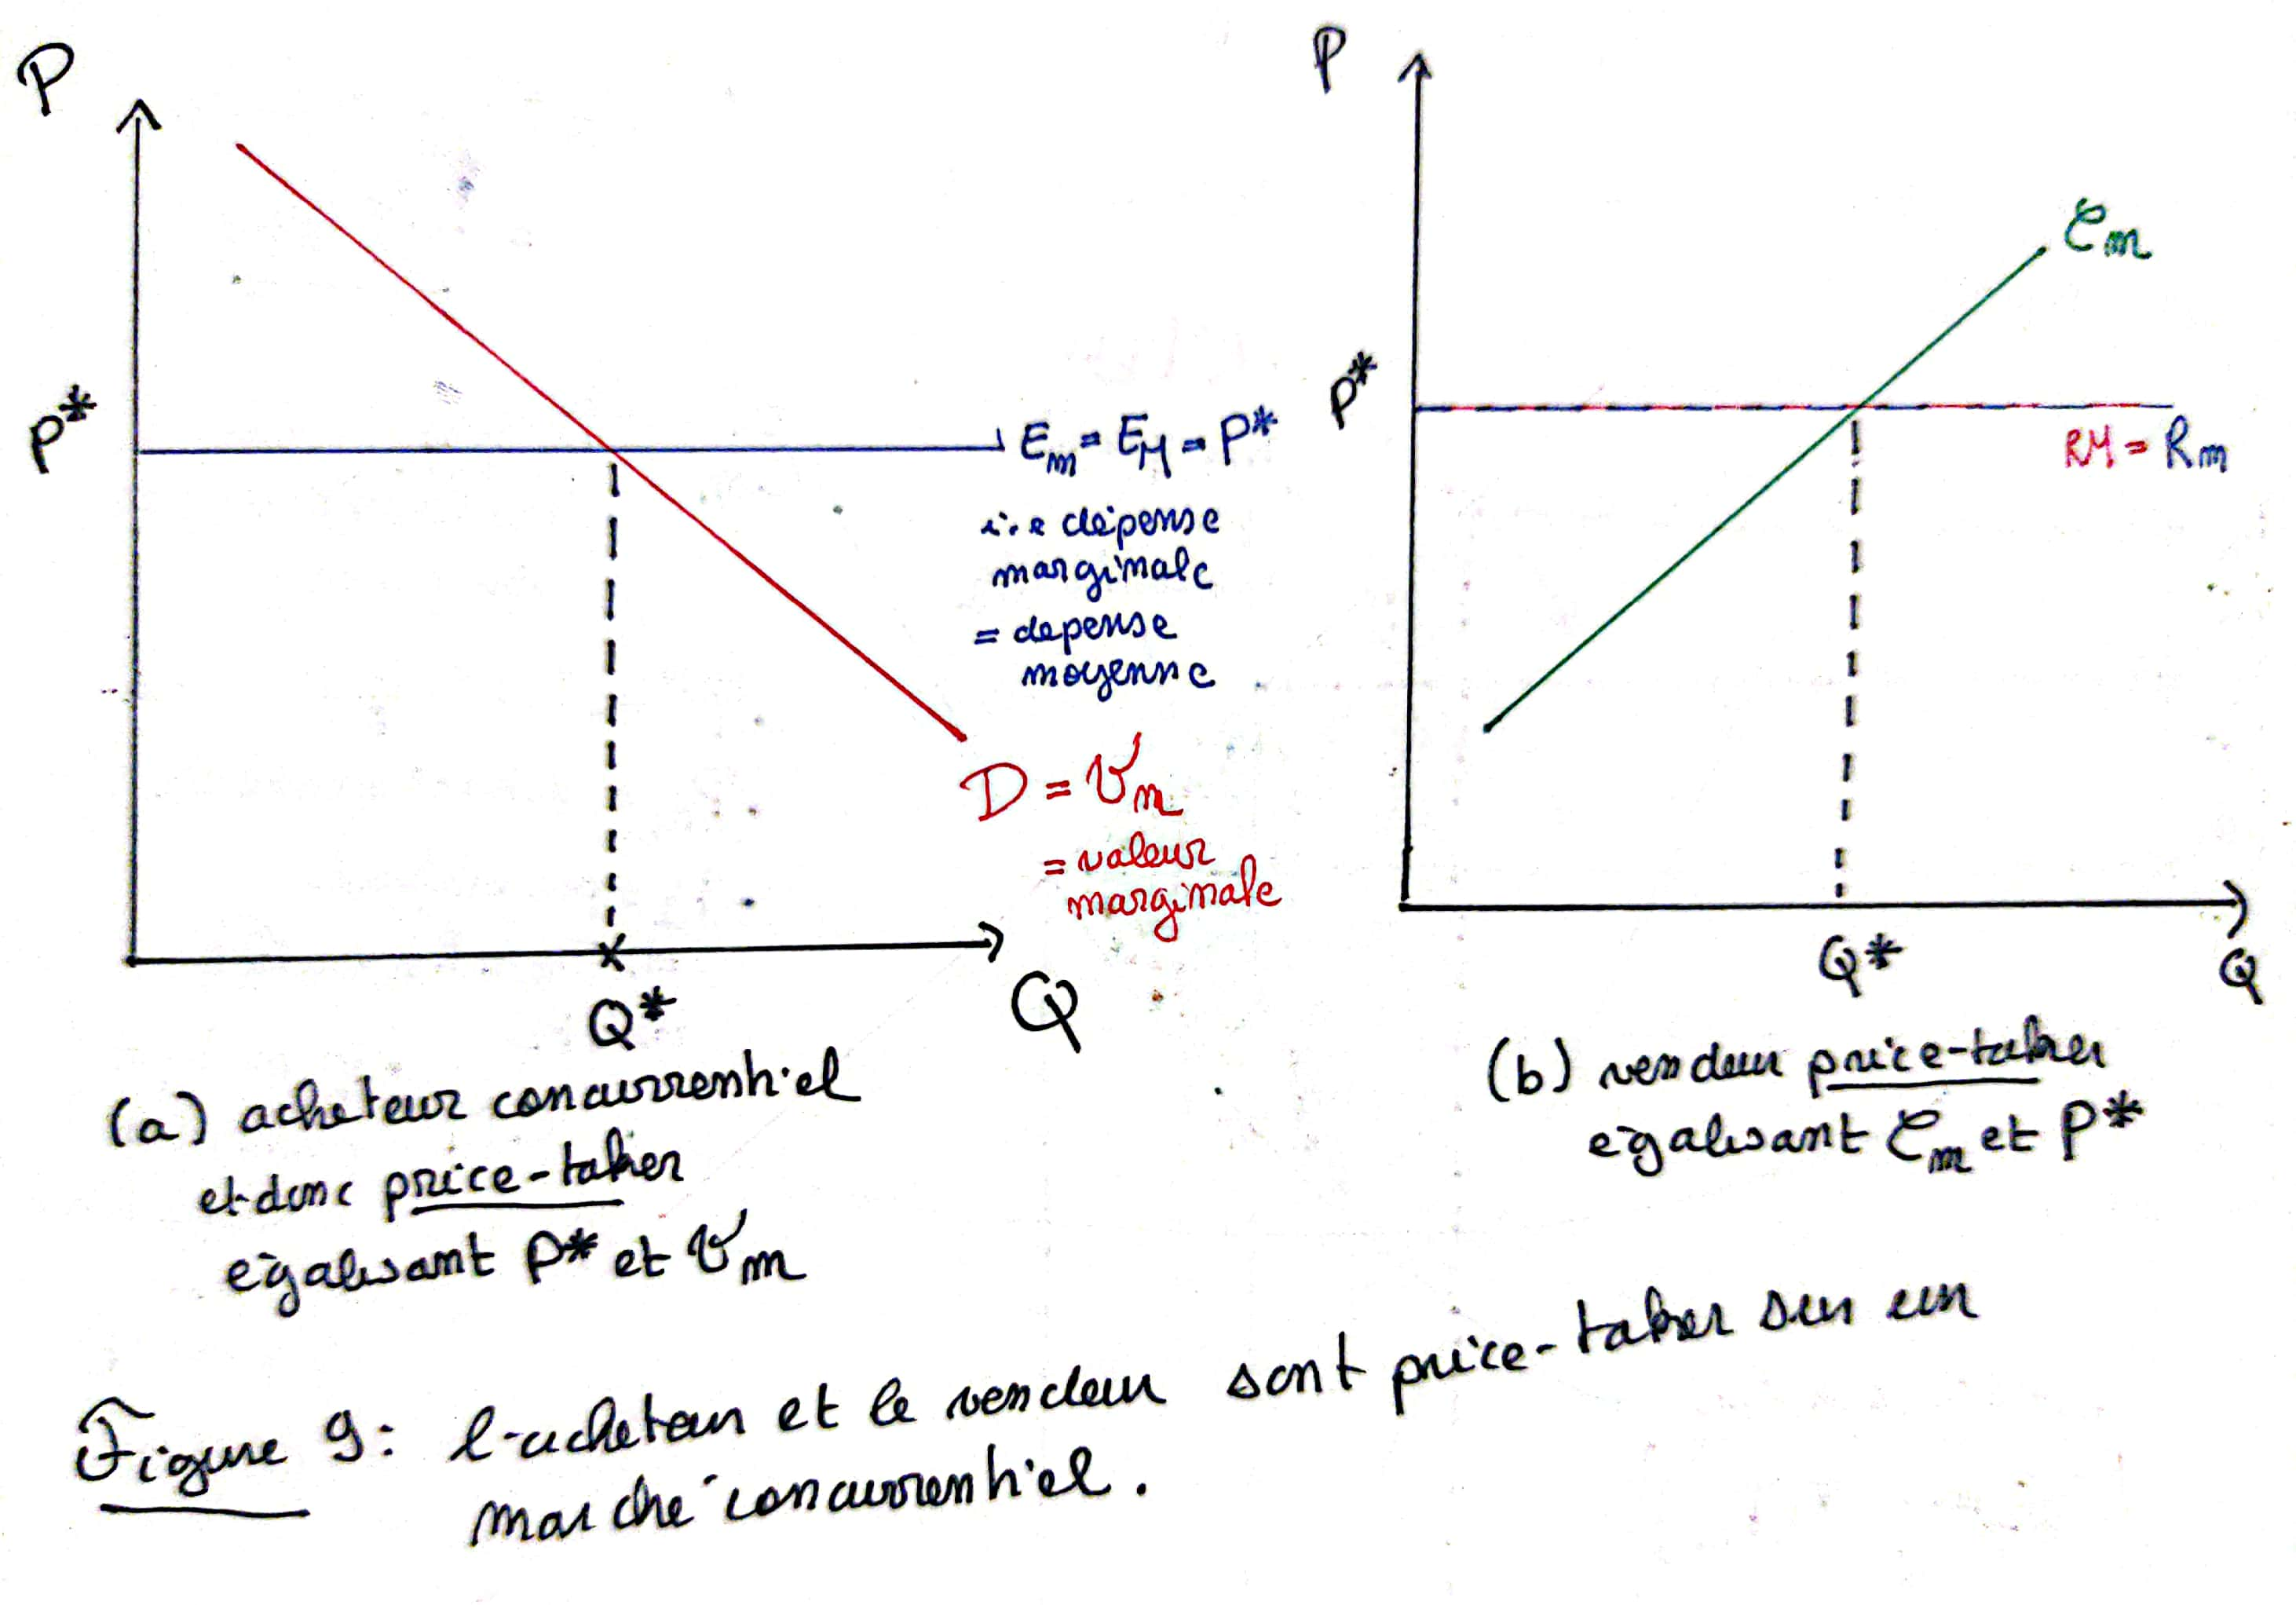 P
P*
Em = EM = P*
i.e dépense
marginale
= depense
moyenne
D = Vm
= valeur
marginale
Q*
Q
(a) acheteur concurrentiel
et donc price-taker
égalisant P* et Vm
P
P*
Cm
RM = Rm
Q*
Q
(b) vendeur price-taker
égalisant Cm et P*
Figure 9: l'acheteur et le vendeur sont price-taker sur un
marché concurrentiel.